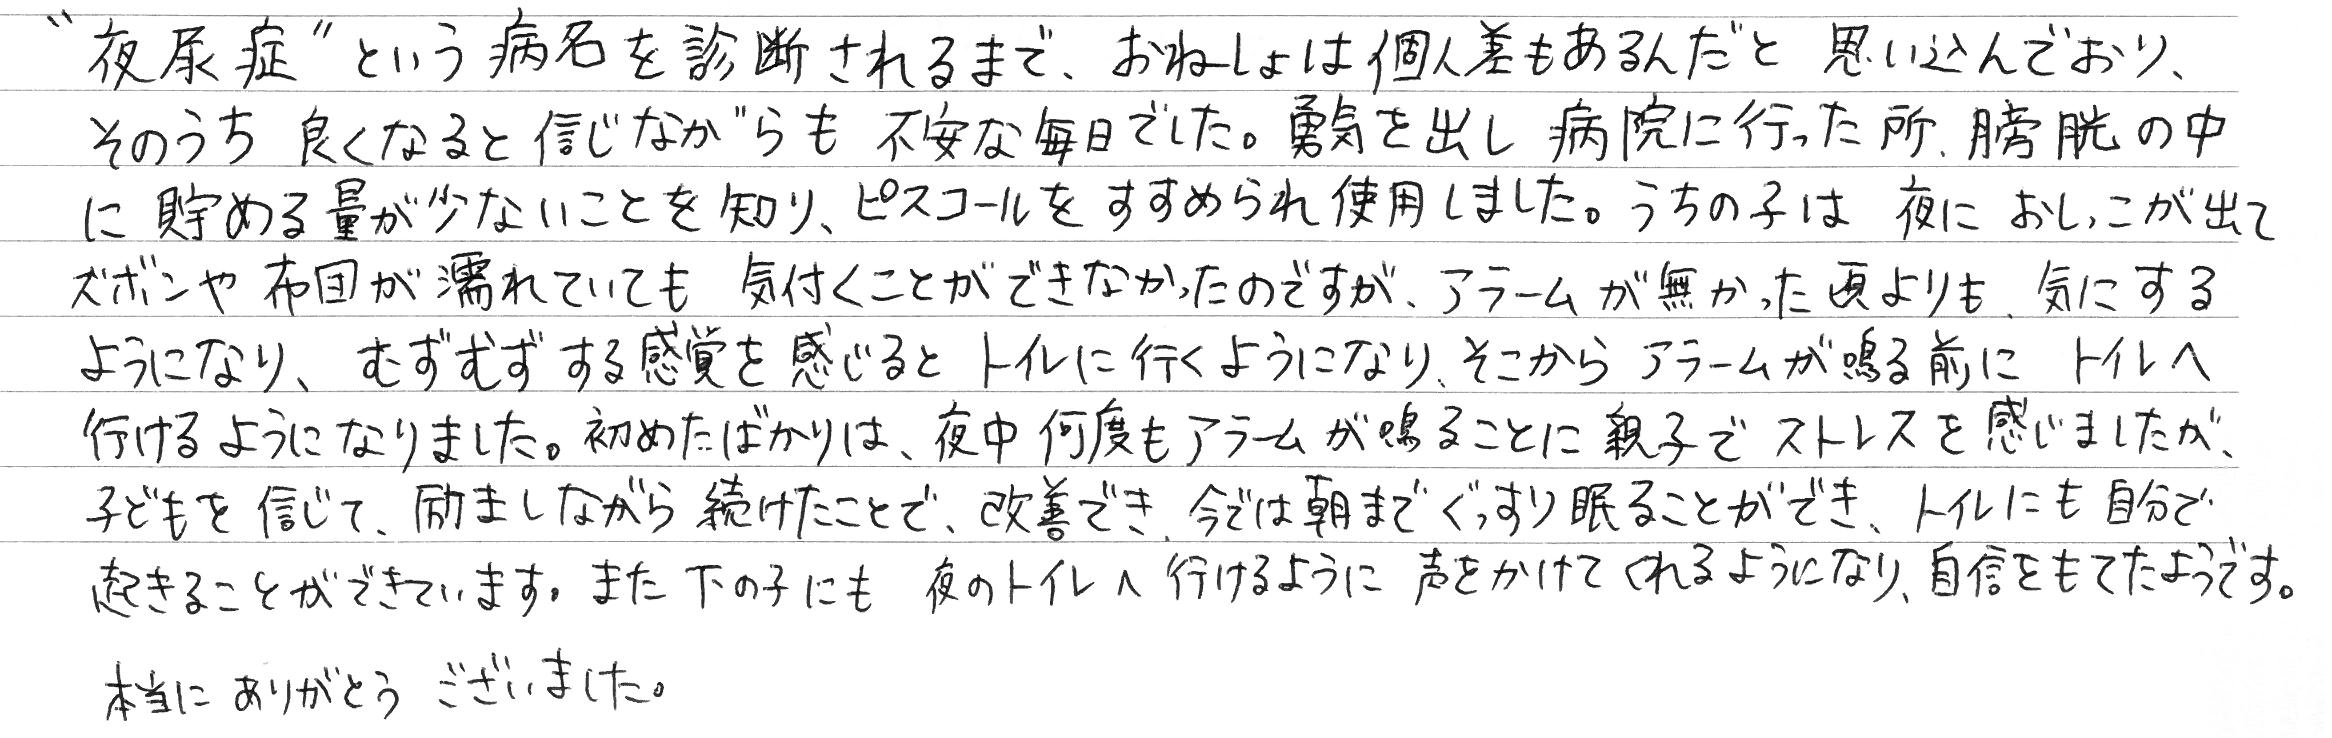 “夜尿症”という病名を診断されるまで、おねしょは個人差もあるんだと思い込んでおり、
そのうち良くなると信じながらも不安な毎日でした。勇気を出し病院に行った所、膀胱の中
に貯める量が少ないことを知り、ピスコールをすすめられ使用しました。うちの子は夜におしっこが出て
ズボンや布団が濡れていても気付くことができなかったのですが、アラームが無かった頃よりも、気にする
ようになり、むずむずする感覚を感じるとトイレに行くようになり、そこからアラームが鳴る前にトイレへ
行けるようになりました。初めたばかりは、夜中何度もアラームが鳴ることに親子でストレスを感じましたが、
子どもを信じて、励ましながら続けたことで、改善でき、今では朝までぐっすり眠ることができ、トイレにも自分で
起きることができています。また下の子にも夜のトイレへ行けるように声をかけてくれるようになり、自信をもてたようです。
本当にありがとうございました。